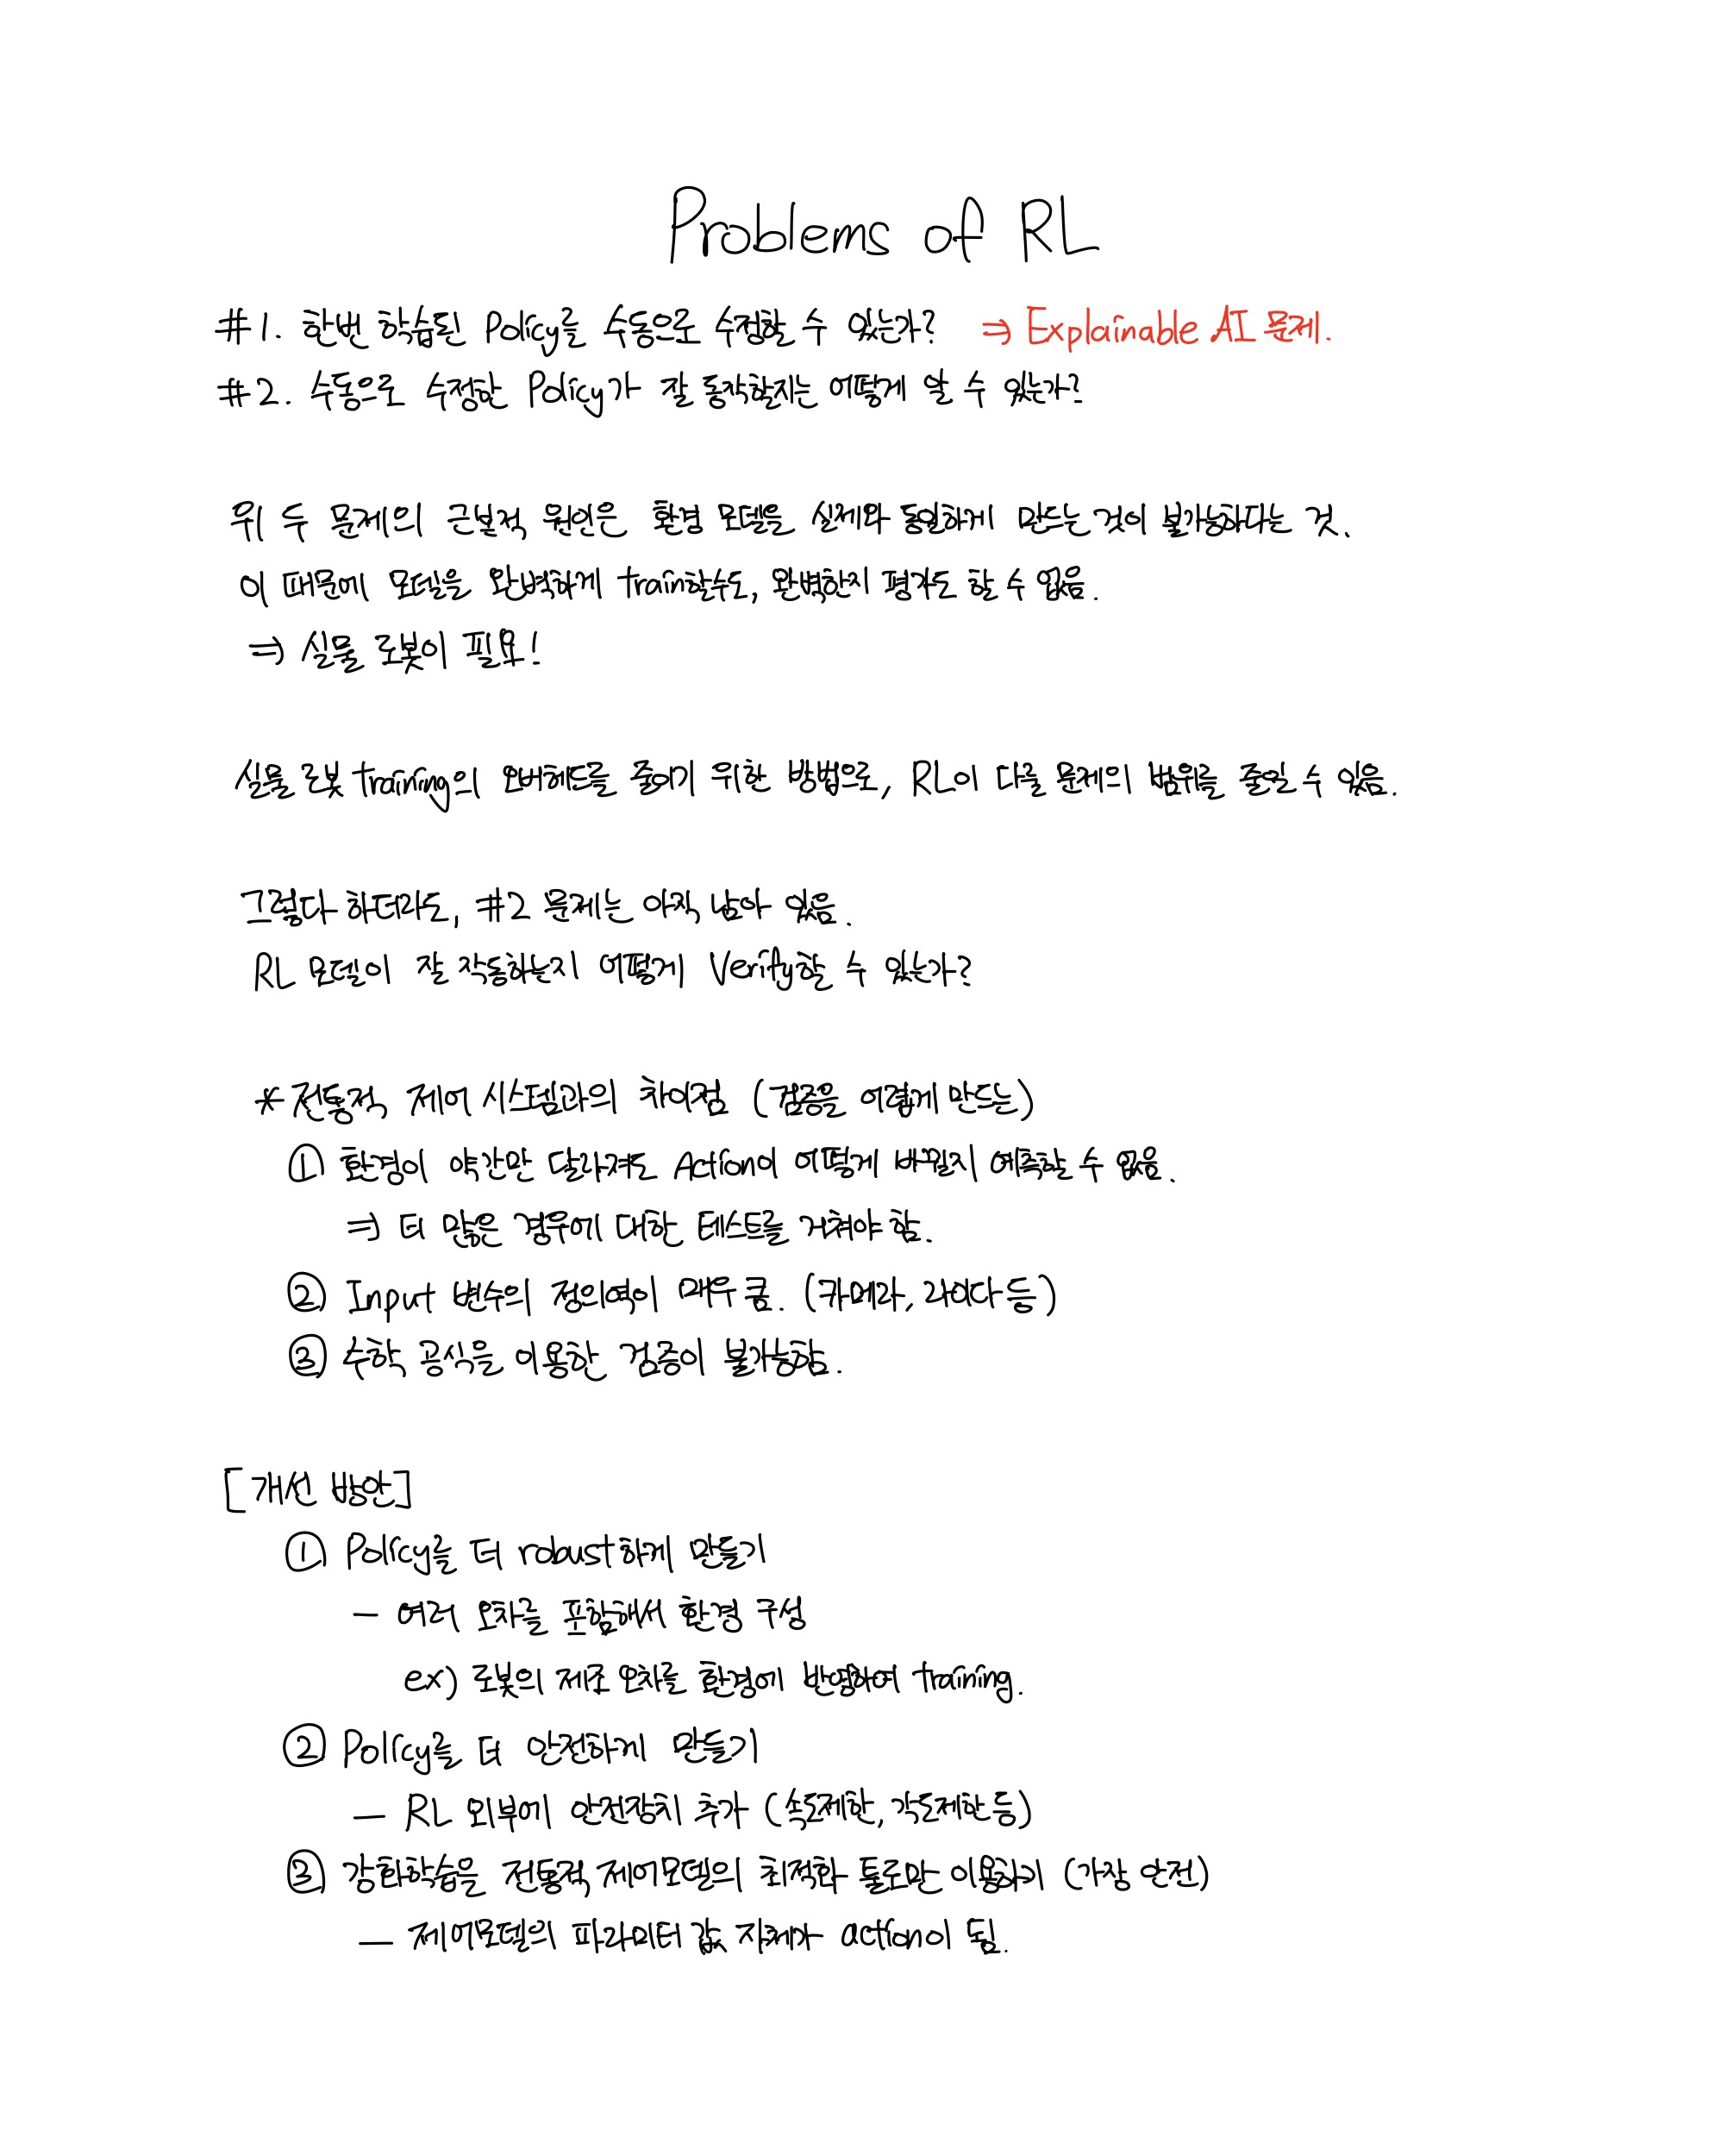 Problems of RL
#1. 한번 학습된 Policy를 수동으로 수정할 수 있는가? ⇒ Explainable AI 문제.
#2. 수동으로 수정한 Policy가 잘 동작할지는 어떻게 알 수 있는가?
위 두 문제의 근본적 원인은 환경 모델을 실제와 동일하게 만드는 것이 불가능하다는 것.
이 때문에 모델을 완벽하게 train할수도, 완벽한지 평가도 할 수 없음.
⇒ 실물 로봇이 필요!
실물 로봇 training의 오버헤드를 줄이기 위한 방법으로, RL이 다룰 문제의 범위를 줄일 수 있음.
그렇다 하더라도, #2 문제는 아직 남아 있음.
RL 모델이 잘 작동하는지 어떻게 Verify할 수 있는가?
* 전통적 제어 시스템과의 차이점 (검증을 어렵게 만드는)
① 환경이 약간만 달라져도 Action이 어떻게 바뀔지 예측할 수 없음.
⇒ 더 많은 경우에 대한 테스트를 거쳐야 함.
② Input 변수의 정의역이 매우 큼. (카메라, 라이다 등)
③ 수학 공식을 이용한 검증이 불가능함.
[개선 방안]
① Policy를 더 robust하게 만들기
- 여러 오차를 포함해서 환경 구성
ex) 로봇의 제조 오차를 환경에 반영하여 training.
② Policy를 더 안전하게 만들기
- RL 외부에 안전장치 추가 (속도제한, 각도제한 등)
③ 강화학습을 전통적 제어모델의 최적화 툴로만 이용하기 (가장 안전)
- 제어모델의 파라미터 값 자체가 action이 됨.